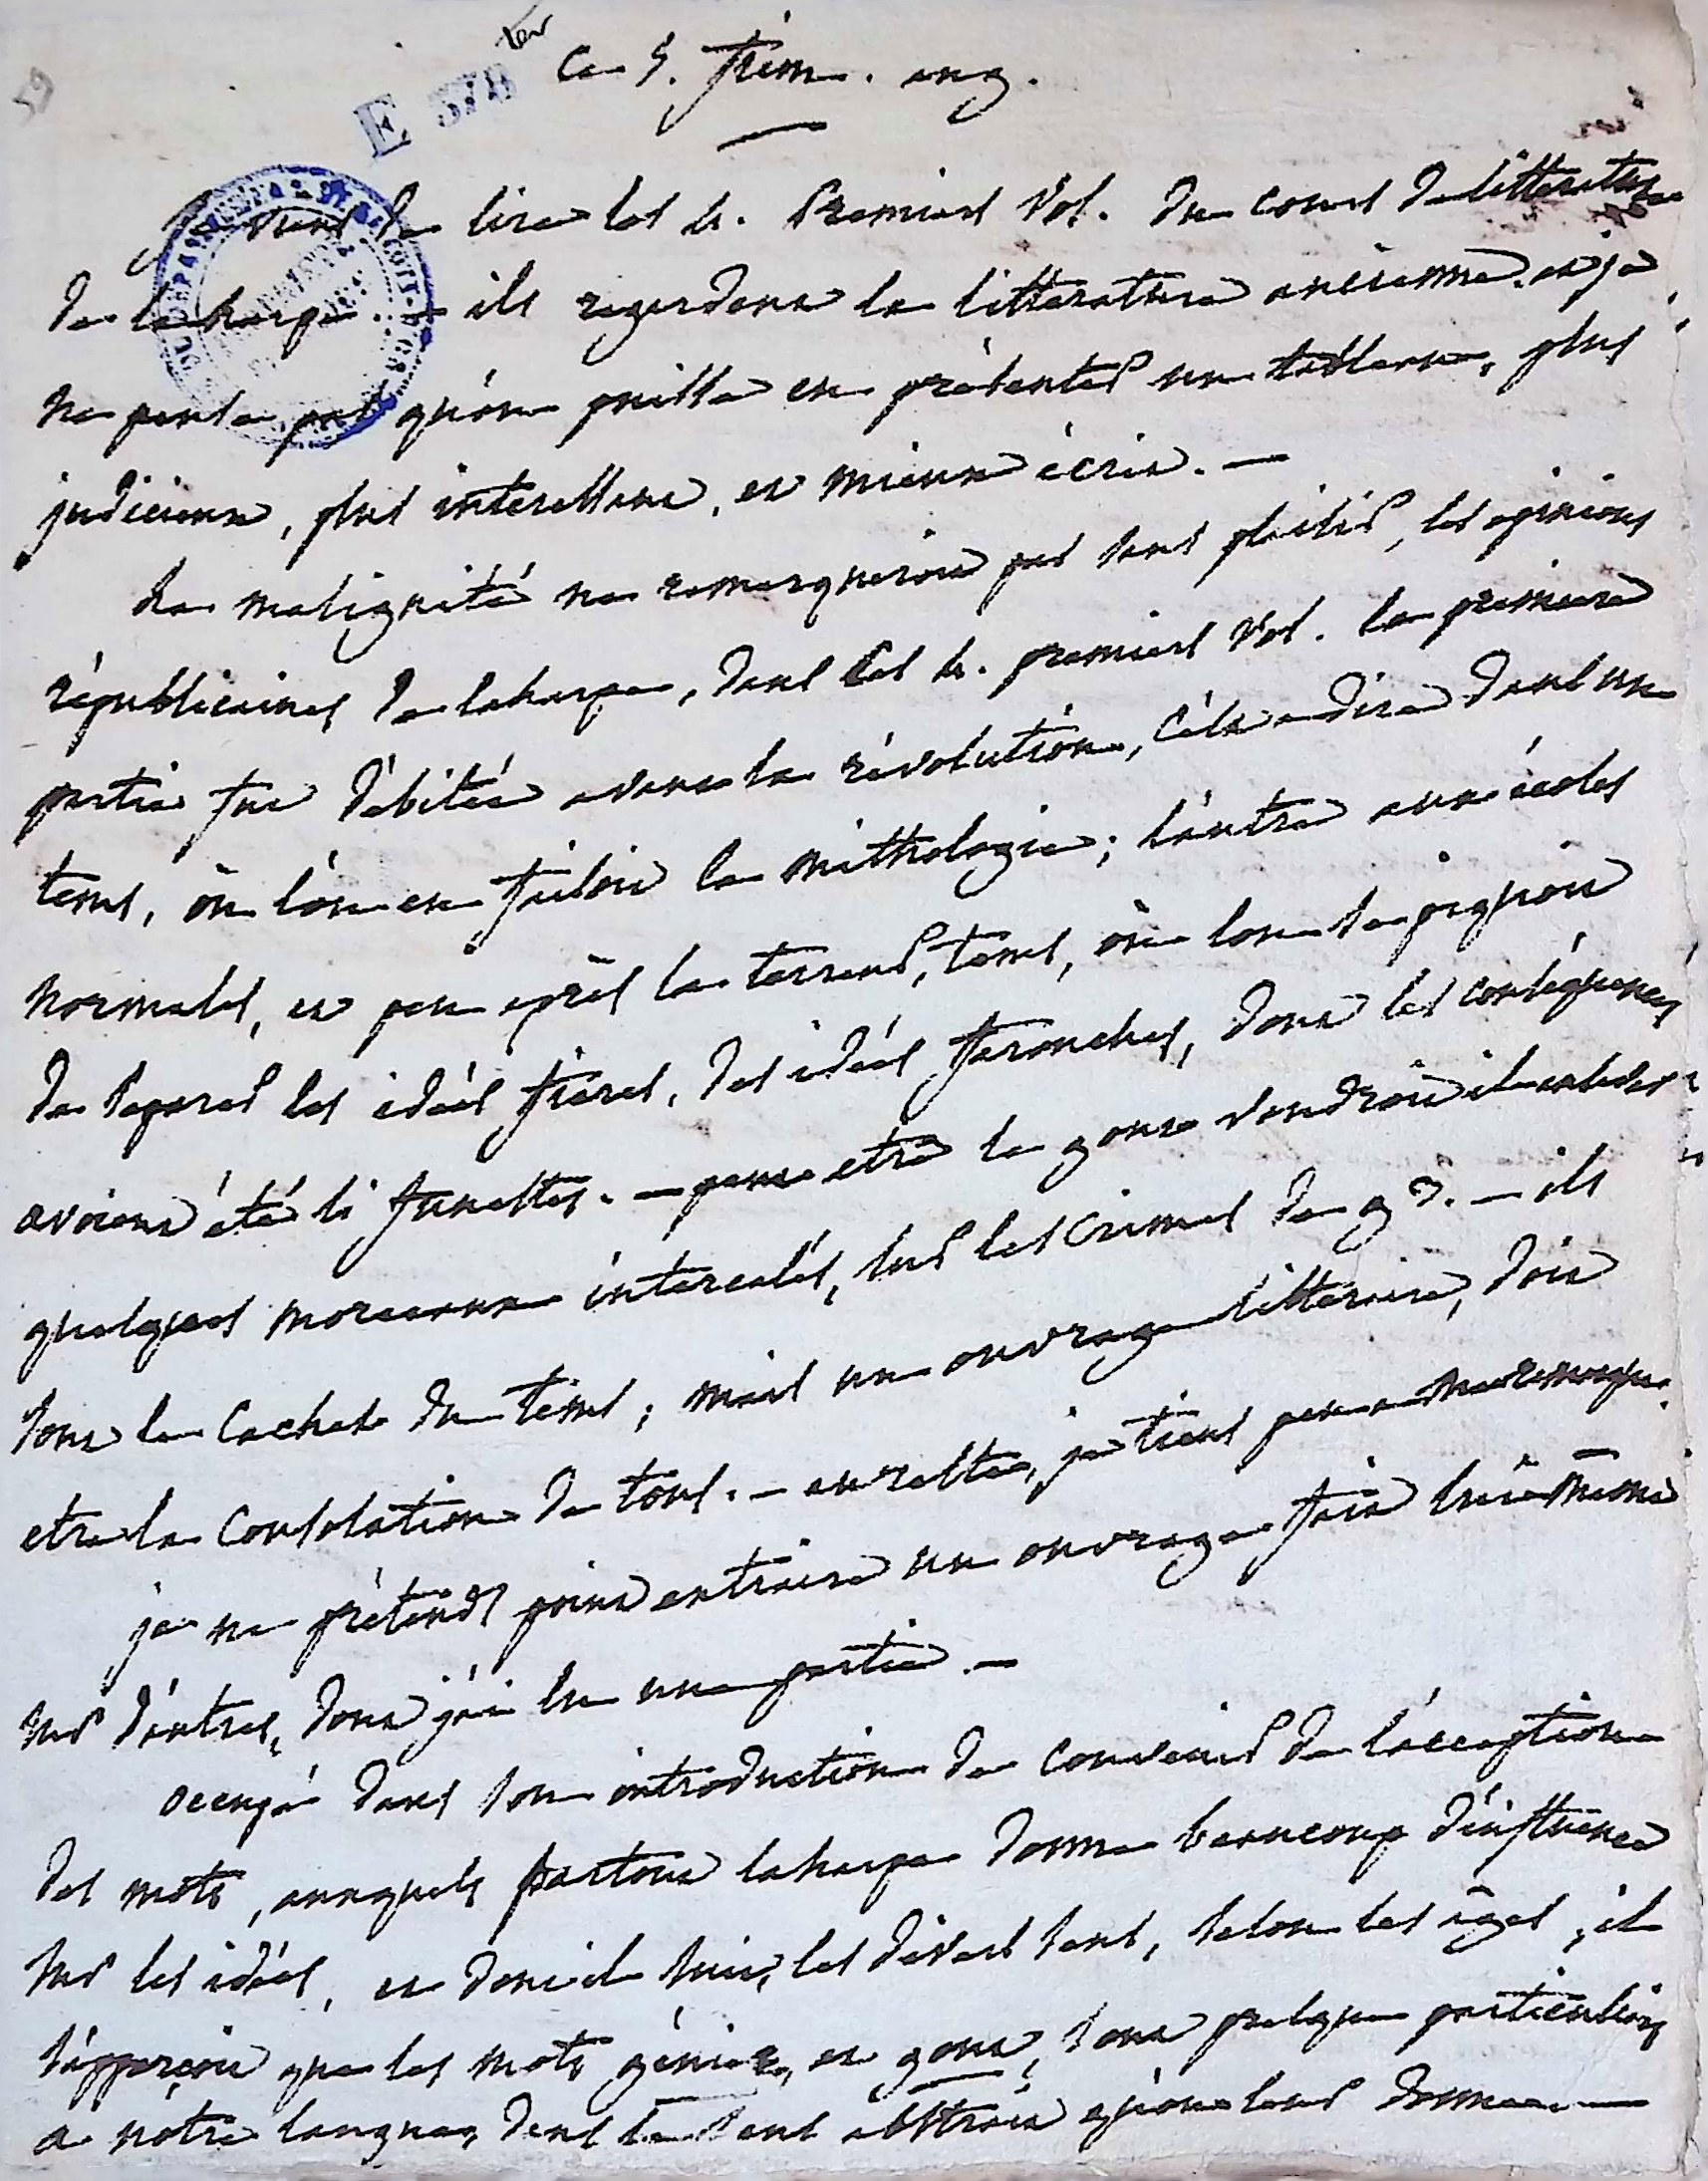 59
E 378 ter
Ce 5. frim. an 9.
Je viens de lire les 4. premiers vol. du cours de litterature
de laharpe. — ils regardent la litterature ancienne. et je
ne pense pas qu'on puisse en présenter un tableau, plus
judicieux, plus interessant, et mieux écrit. —
La malignité ne remarqueroit pas sans plaisir, les opinions
républicaines de laharpe, dans les 4. premiers vol. la premiere
partie fut débitée avant la révolution, c'est a dire dans un
tems, où l'on en faisoit la mithologie; l'autre aux écoles
normales, et peu après la terreur, tems, où l'on se piquoit
de séparer les idées fieres, des idées farouches, dont les conséquences
avoient été si funestes. — peut etre le gout voudroit il
quelques morceaux intercalés, sur les crimes de 93. — ils
sont le cachet du tems; mais un ouvrage litteraire, doit
etre la consolation de tous. — au reste, je tiens peu a ma remarque.
je ne prétends point extraire un ouvrage fait lui même
sur d'autres, dont j'ai lu une partie. —
occupé dans son introduction de convenir de l'acception
des mots, auxquels partout laharpe donne beaucoup d'influence
sur les idées, et dont il suit, les divers sens, selon les ages, il
s'apperçoit que les mots génie, et gout, sont presque particuliers
a nôtre langue, dans le sens abstrait qu'on leur donne. —